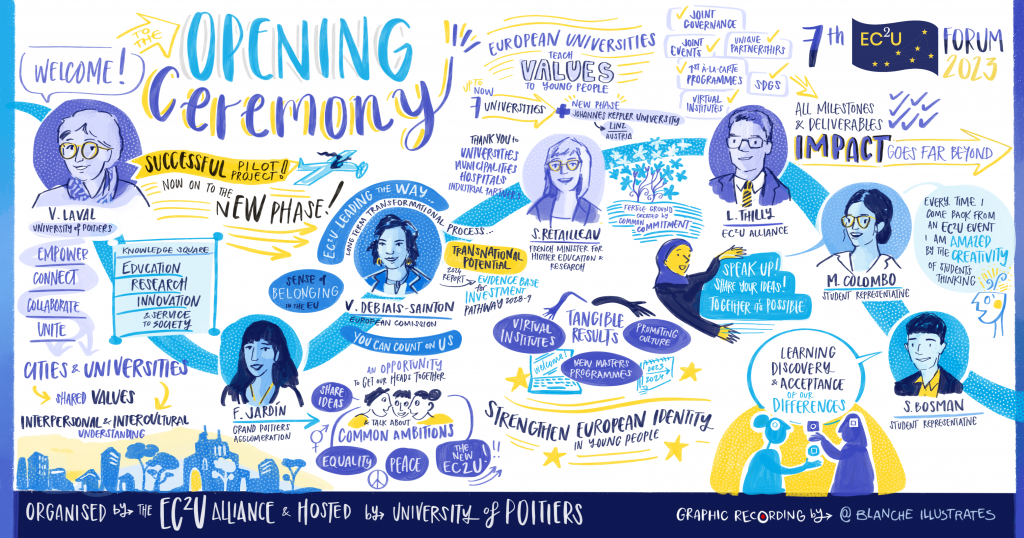 WELCOME!
TO THE
OPENING
Ceremony
V. LAVAL
UNIVERSITY OF POITIERS
SUCCESSFUL PILOT PROJECT!
NOW ON TO THE
NEW PHASE!
EMPOWER
CONNECT
COLLABORATE
UNITE
KNOWLEDGE SQUARE
EDUCATION
RESEARCH
INNOVATION
& SERVICE
TO SOCIETY
CITIES & UNIVERSITIES
SHARED VALUES
INTERPERSONAL & INTERCULTURAL
UNDERSTANDING
F. JARDIN
GRAND POITIERS
AGGLOMERATION
EC2U LEADING THE WAY
LONG TERM TRANSFORMATIONAL PROCESS...
SENSE of
BELONGING
IN THE EU
V. DEBIAIS-SAINTON
EUROPEAN COMISSION
YOU CAN COUNT ON US
TRANSNATIONAL
POTENTIAL
2024
REPORT
EVIDENCE BASE
for
INVESTMENT
PATHWAY 2028-9
AN OPPORTUNITY
TO GET OUR HEADS TOGETHER
SHARE
IDEAS
& TALK ABOUT
COMMON AMBITIONS
EQUALITY
PEACE
THE NEW
EC2U!
EUROPEAN UNIVERSITIES
TEACH
VALUES
TO YOUNG PEOPLE
UP TO
NOW
7 UNIVERSITIES
+ NEW PHASE
JOHANNES KEPPLER UNIVERSITY
LINZ
AUSTRIA
THANK YOU to
UNIVERSITIES
MUNICIPALITIES
HOSPITALS
INDUSTRIAL PARTNERS
S. RETAILLEAU
FRENCH MINISTER FOR
HIGHER EDUCATION &
RESEARCH
FERTILE GROUND
CREATED BY
COMMON
COMMITMENT
TANGIBLE
RESULTS
VIRTUAL
INSTITUTES
PROMOTING
CULTURE
NEW MASTERS
PROGRAMMES
Welcome!
2023
2024
STRENGTHEN EUROPEAN IDENTITY
IN YOUNG PEOPLE
JOINT
GOVERNANCE
JOINT
EVENTS
UNIQUE
PARTNERSHIPS
1st À-LA-CARTE
PROGRAMMES
SDGS
VIRTUAL
INSTITUTES
L. THILLY
EC2U ALLIANCE
7th EC2U FORUM
2023
ALL MILESTONES
& DELIVERABLES
IMPACT GOES FAR BEYOND
SPEAK UP!
SHARE YOUR IDEAS!
TOGETHER it's POSSIBLE
M. COLOMBO
STUDENT REPRESENTATIVE
EVERY TIME I
COME BACK FROM
AN EC2U EVENT
I AM AMAZED
BY THE CREATIVITY
OF STUDENTS
THINKING
LEARNING
DISCOVERY
& ACCEPTANCE
OF OUR
DIFFERENCES
S. BOSMAN
STUDENT REPRESENTATIVE
ORGANISED by THE EC2U ALLIANCE & HOSTED by UNIVERSITY of POITIERS
GRAPHIC RECORDING BY @ BLANCHE ILLUSTRATES